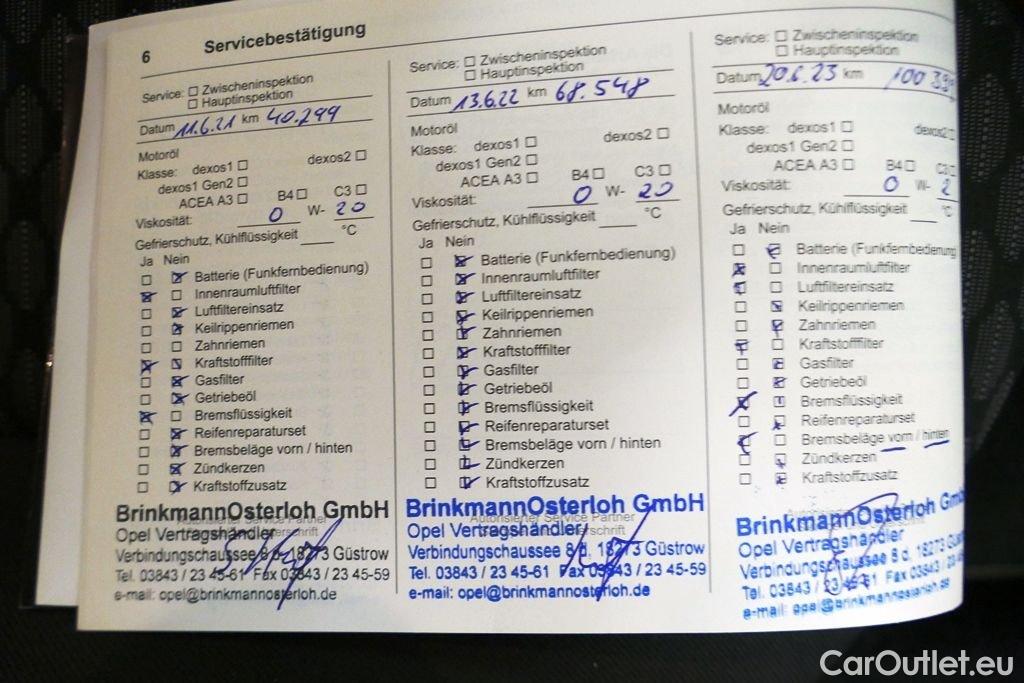 6
Servicebestätigung
Service: Zwischeninspektion
Hauptinspektion
Datum 11.6.21 km 40.299
Motoröl
Klasse: dexos1 dexos2
dexos1 Gen2
ACEA A3 B4 C3
Viskosität: 0 W- 20
Gefrierschutz, Kühlflüssigkeit °C
Ja Nein
Batterie (Funkfernbedienung)
Innenraumluftfilter
Luftfiltereinsatz
Keilrippenriemen
Zahnriemen
Kraftstofffilter
Gasfilter
Getriebeöl
Bremsflüssigkeit
Reifenreparaturset
Bremsbeläge vorn / hinten
Zündkerzen
Kraftstoffzusatz
BrinkmannOsterloh GmbH
Autorisierter Service Partner
Opel Vertragshändler
Verbindungschaussee 8 d, 18273 Güstrow
Tel. 03843 / 23 45-61 Fax 03843 / 23 45-59
e-mail: opel@brinkmannosterloh.de
Service: Zwischeninspektion
Hauptinspektion
Datum 13.6.22 km 68.548
Motoröl
Klasse: dexos1 dexos2
dexos1 Gen2
ACEA A3 B4 C3
Viskosität: 0 W- 20
Gefrierschutz, Kühlflüssigkeit °C
Ja Nein
Batterie (Funkfernbedienung)
Innenraumluftfilter
Luftfiltereinsatz
Keilrippenriemen
Zahnriemen
Kraftstofffilter
Gasfilter
Getriebeöl
Bremsflüssigkeit
Reifenreparaturset
Bremsbeläge vorn / hinten
Zündkerzen
Kraftstoffzusatz
BrinkmannOsterloh GmbH
Autorisierter Service Partner
Opel Vertragshändler
Verbindungschaussee 8 d, 18273 Güstrow
Tel. 03843 / 23 45-61 Fax 03843 / 23 45-59
e-mail: opel@brinkmannosterloh.de
Service: Zwischeninspektion
Hauptinspektion
Datum 20.6.23 km
Motoröl
Klasse: dexos1 dexos2
dexos1 Gen2
ACEA A3 B4 C3
Viskosität: 0 W- 2
Gefrierschutz, Kühlflüssigkeit °C
Ja Nein
Batterie (Funkfernbedienung)
Innenraumluftfilter
Luftfiltereinsatz
Keilrippenriemen
Zahnriemen
Kraftstofffilter
Gasfilter
Getriebeöl
Bremsflüssigkeit
Reifenreparaturset
Bremsbeläge vorn / hinten
Zündkerzen
Kraftstoffzusatz
BrinkmannOsterloh GmbH
Opel Vertragshändler
Verbindungschaussee 8 d, 18273
Tel. 03843 / 23 45-61 Fax 03843 / 23 45
e-mail: opel@brinkmannosterloh.de
CarOutlet.eu